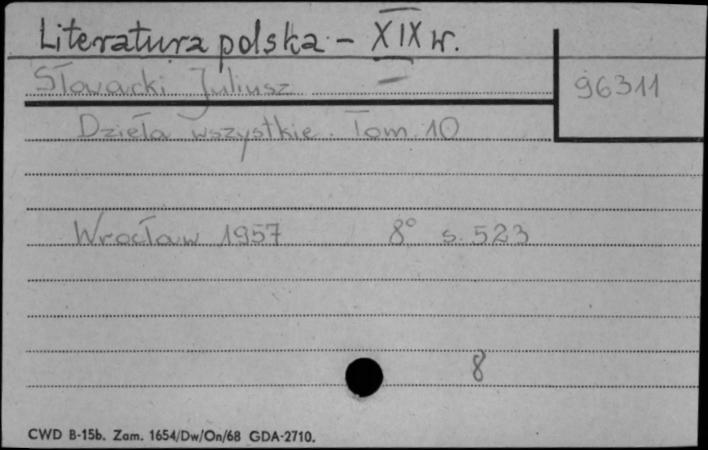 Literatura polska - XIX w.
Słowacki Juliusz
96311
Dzieła wszystkie. Tom 10
Wrocław 1957 8° s. 523
8
CWD B-15b. Zam. 1654/Dw/On/68 GDA-2710.